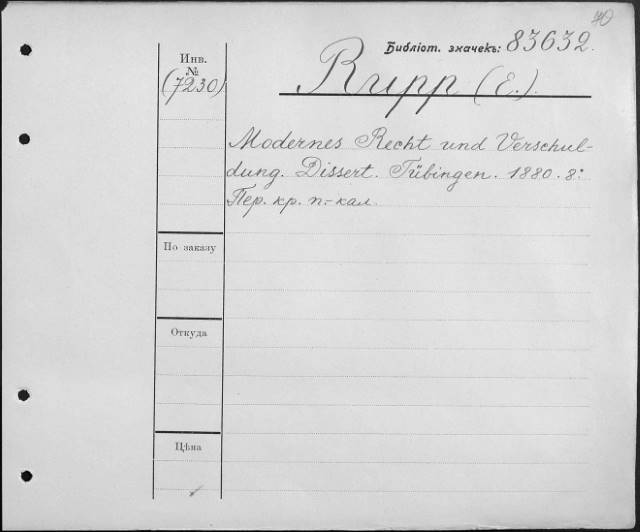 40
Библіот. значекъ: 83632.
Инв.
№
(7230)
Rupp (E.).
Modernes Recht und Verschul-
dung. Dissert. Tübingen. 1880. 8:
Пер. кр. п.-кал.
По заказу
Откуда
Цѣна